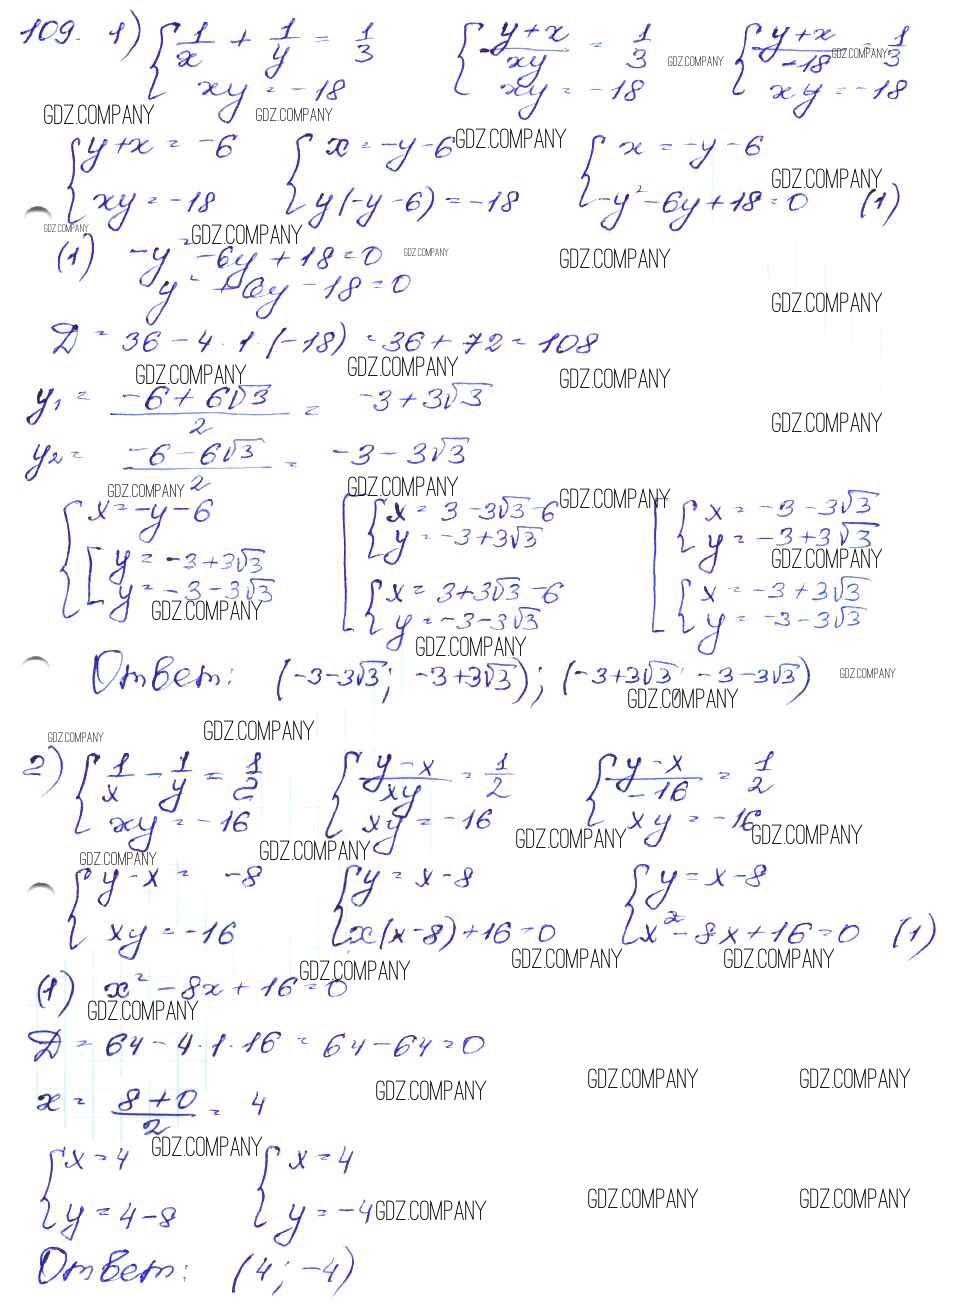 109. 1) { 1/x + 1/y = 1/3   { (y+x)/xy = 1/3   { (y+x)/-18 = 1/3
xy = -18   xy = -18   xy = -18
{ y+x = -6   { x = -y-6   { x = -y-6
xy = -18   y(-y-6) = -18   -y²-6y+18=0 (1)
(1) -y²-6y+18=0
y²+6y-18=0
Д = 36-4·1·(-18) = 36+72 = 108
y₁ = (-6+6√3)/2 = -3+3√3
y₂ = (-6-6√3)/2 = -3-3√3
{ x=-y-6   [ { x = 3-3√3-6   [ { x = -3-3√3
[ y = -3+3√3   y = -3+3√3   y = -3+3√3
y = -3-3√3   { x = 3+3√3-6   { x = -3+3√3
y = -3-3√3   y = -3-3√3
Ответ: (-3-3√3; -3+3√3); (-3+3√3; -3-3√3)
2) { 1/x - 1/y = 1/2   { (y-x)/xy = 1/2   { (y-x)/-16 = 1/2
xy = -16   xy = -16   xy = -16
{ y-x = -8   { y = x-8   { y = x-8
xy = -16   x(x-8)+16=0   x²-8x+16=0 (1)
(1) x²-8x+16=0
Д = 64-4·1·16 = 64-64=0
x = (8+0)/2 = 4
{ x=4   { x=4
y=4-8   y=-4
Ответ: (4; -4)
GDZ.COMPANY